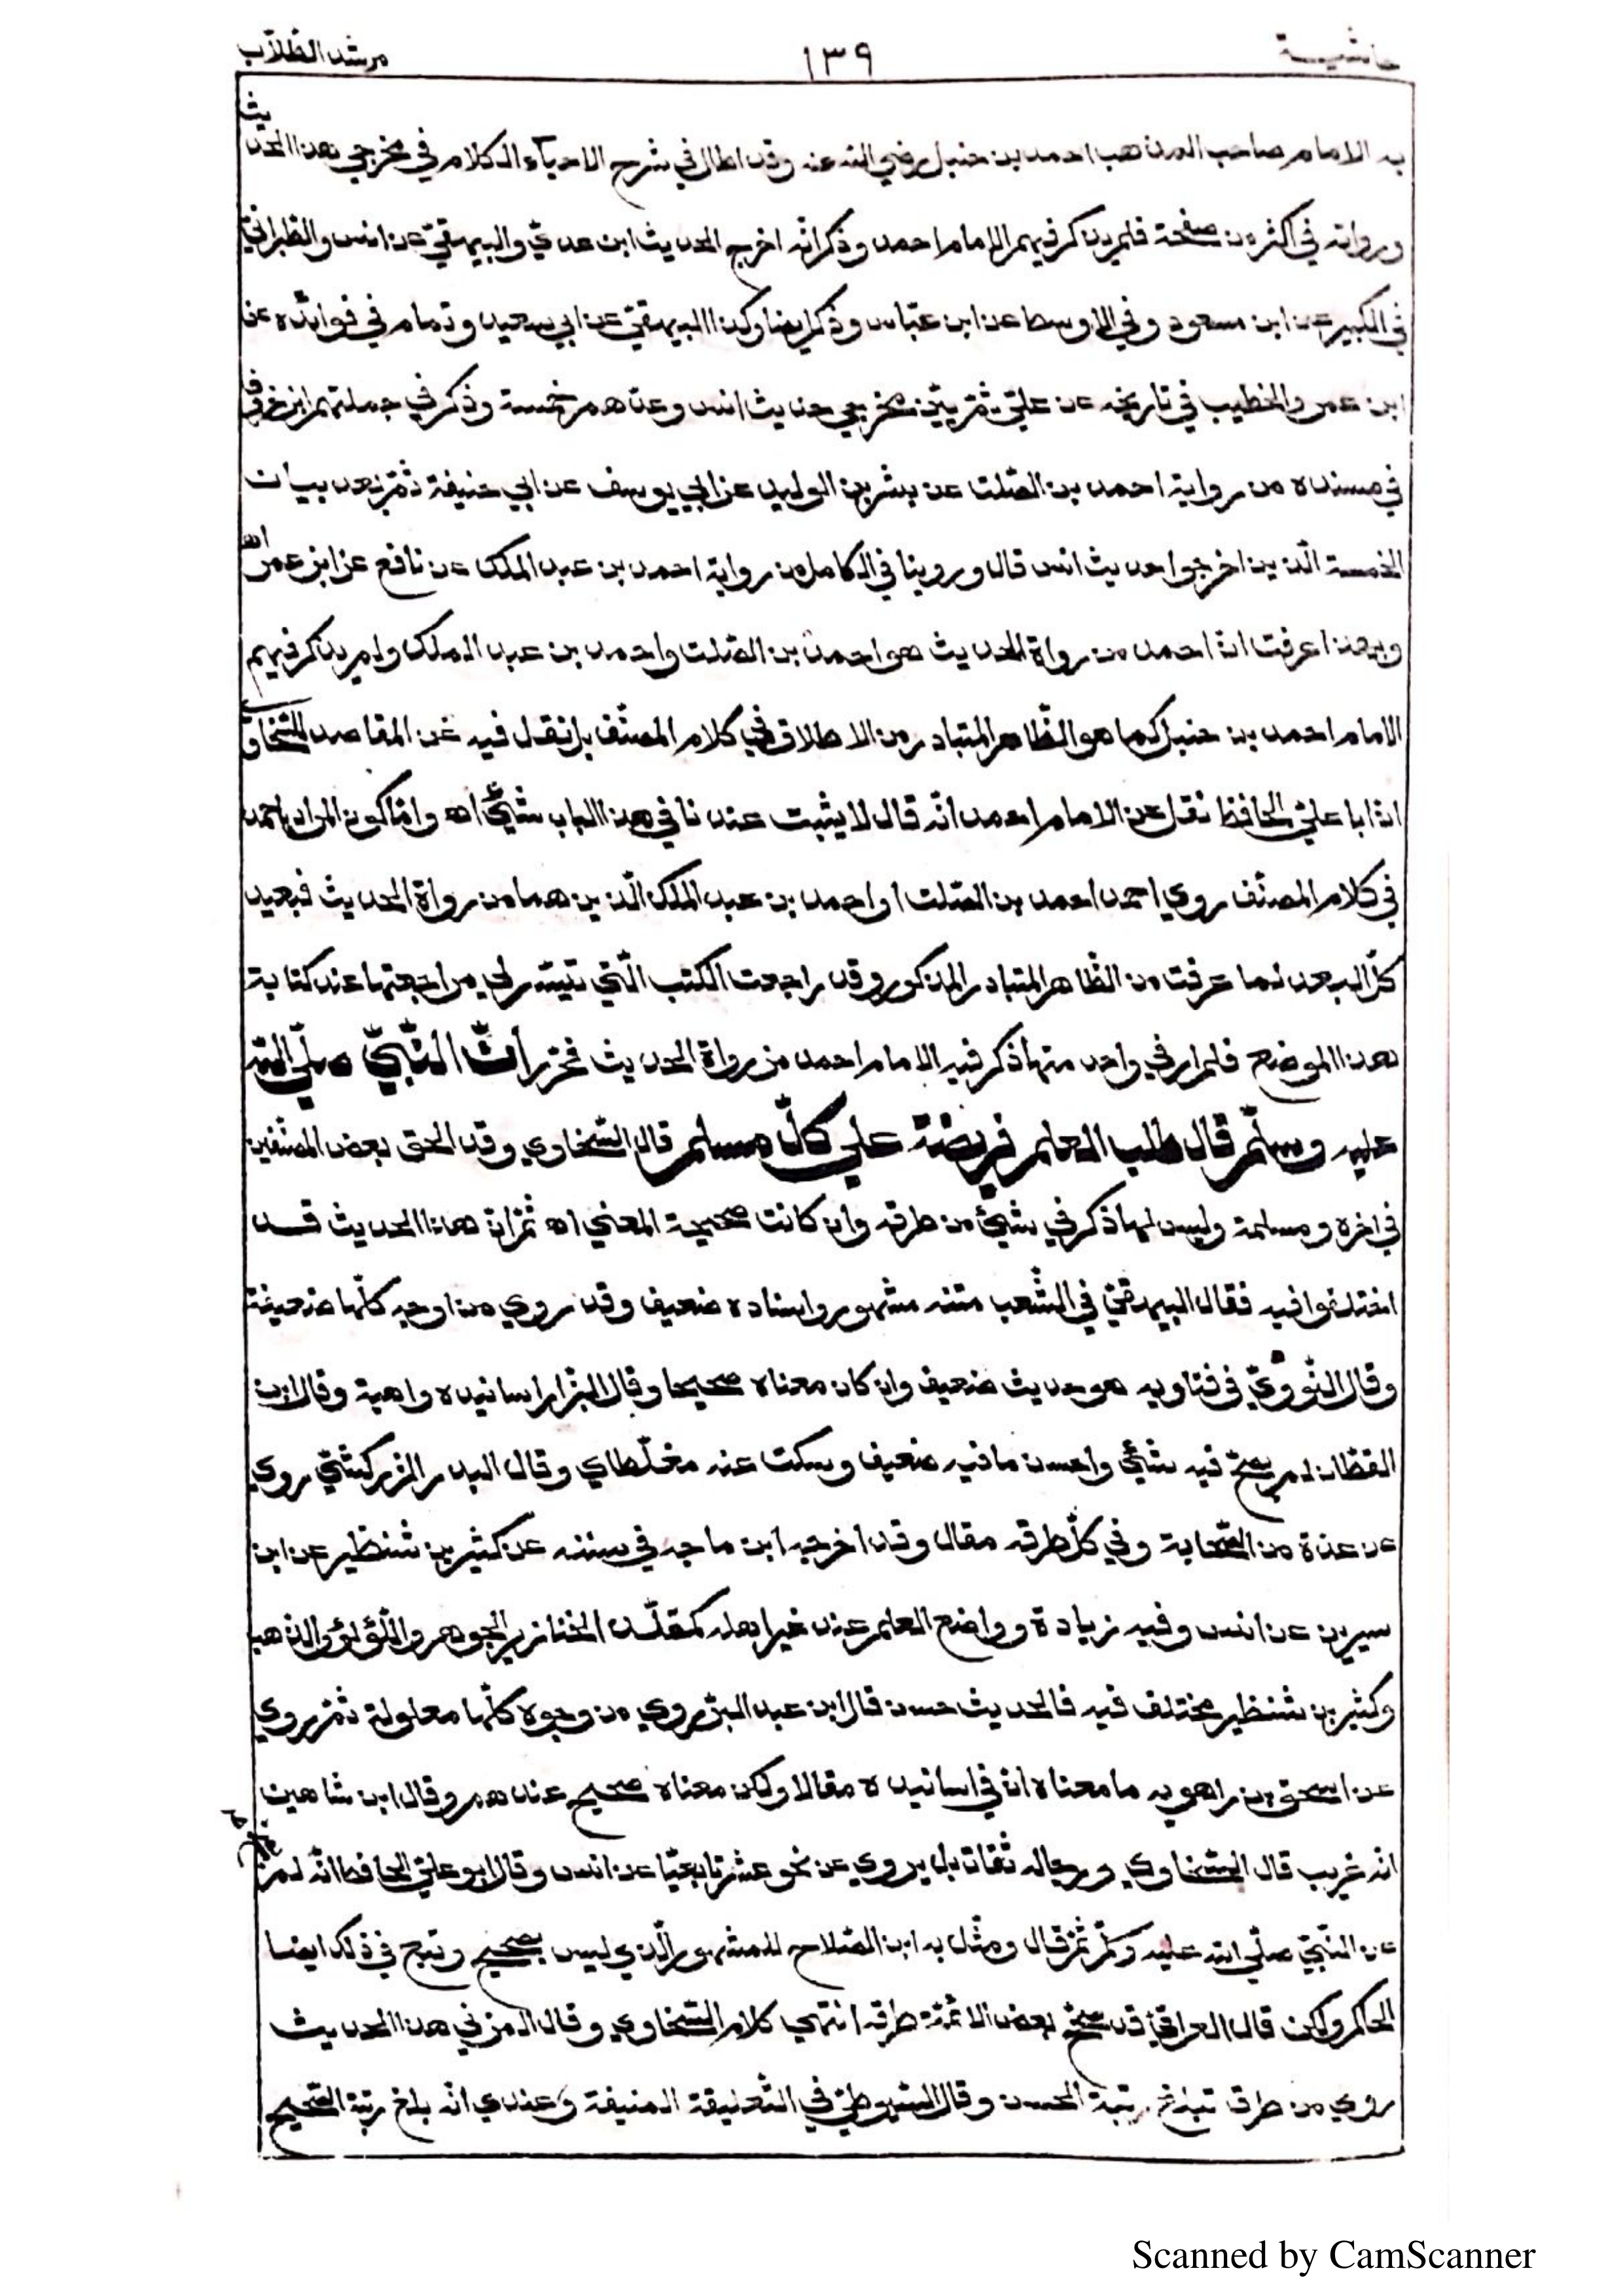 حاشية ١٣٩ مرشد الطلاب
به الامام صاحب المذهب احمد بن حنبل رضي الله عنه وقد اطال في شرح الاحياء الكلام في مخرجي هذا الحديث
ورواته في اكثر من صفحة فلم يذكر فيهم الامام احمد وذكر انه اخرج الحديث ابن عدي والبيهقي عن انس والطبراني
في الكبير عن ابن مسعود وفي الاوسط عن ابن عباس وذكر ايضا وكذا البيهقي عن ابي سعيد وتمام في فوائده عن
ابن عمر والخطيب في تاريخه عن علي ثم بين مخرجي حديث انس وعدهم خمسة وذكر في جملتهم ابن
في مسنده من رواية احمد بن الصلت عن بشر بن الوليد عن ابي يوسف عن ابي حنيفة ثم بعد بيان
الخمسة الذين اخرجوا حديث انس قال وروينا في الكامل من رواية احمد بن عبد الملك عن نافع عن ابن عمر اه
وبهذا عرفت ان احمد من رواة الحديث هو احمد بن الصلت واحمد بن عبد الملك ولم يذكر فيهم
الامام احمد بن حنبل كما هو الظاهر المتبادر من الاطلاق في كلام المصنف بل نقل فيه عن المقاصد للسخاوي
ان ابا علي الحافظ نقل عن الامام احمد انه قال لا يثبت عندنا في هذا الباب شيئ اه واما كون المراد باحمد
في كلام المصنف روي احمد احمد بن الصلت او احمد بن عبد الملك الذين هما من رواة الحديث فبعيد
كل البعد لما عرفت من الظاهر المتبادر المذكور وقد راجعت الكتب التي تيسر لي مراجعتها عند كتابة
هذا الموضع فلم ار في واحد منها ذكر فيه الامام احمد من رواة الحديث فحرر ان النبي صلى الله
عليه وسلم قال طلب العلم فريضة على كل مسلم قال السخاوي وقد الحق بعض المصنفين
في اخره ومسلمة وليس لها ذكر في شيئ من طرقه وان كانت صحيحة المعني اه ثم ان هذا الحديث قد
اختلفوا فيه فقال البيهقي في الشعب متنه مشهور واسناده ضعيف وقد روي من اوجه كلها ضعيفة
وقال النووي في فتاويه هو حديث ضعيف وان كان معناه صحيحا وقال البزار اسانيده واهية وقال ابن
القطان لم يصح فيه شيئ واحسن ما فيه ضعيف وسكت عنه مغلطاي وقال البدر الزركشي روي
عن عدة من الصحابة وفي كل طرقه مقال وقد اخرجه ابن ماجه في سننه عن كثير بن شنظير عن ابن
سيرين عن انس وفيه زيادة وواضع العلم عند غير اهله كمقلد الخنازير الجوهر واللؤلؤ والذهب
وكثير بن شنظير مختلف فيه فالحديث حسن قال ابن عبد البر روي من وجوه كلها معلولة ثم روي
عن اسحق بن راهويه ما معناه ان في اسانيده مقالا ولكن معناه صحيح عندهم وقال ابن شاهين
انه غريب قال السخاوي ورجاله ثقات بل يروي عن نحو عشر تابعيا عن انس وقال ابو علي الحافظ انه لم
عن النبي صلى الله عليه وكرم ثم قال ومثل به ابن الصلاح للمشهور الذي ليس بصحيح وتبع في ذلك ايضا
الحاكم ولكن قال العراقي قد صحح بعض الائمة طرقه انتهى كلام السخاوي وقال المزني هذا الحديث
روي من طرق تبلغ رتبة الحسن وقال السيوطي في التعليقة المنيفة وعندي انه بلغ رتبة الصحيح
Scanned by CamScanner